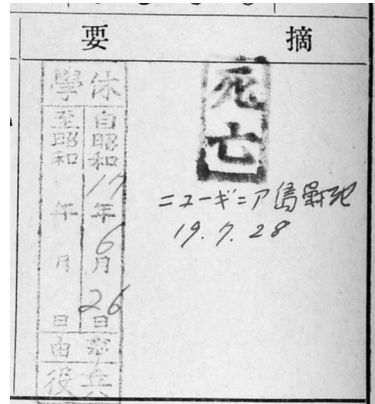 摘要
死亡
ニューギニア島戰地
19.7.28
休學
自昭和17年6月26日
至昭和 年 月 日
事由
兵役